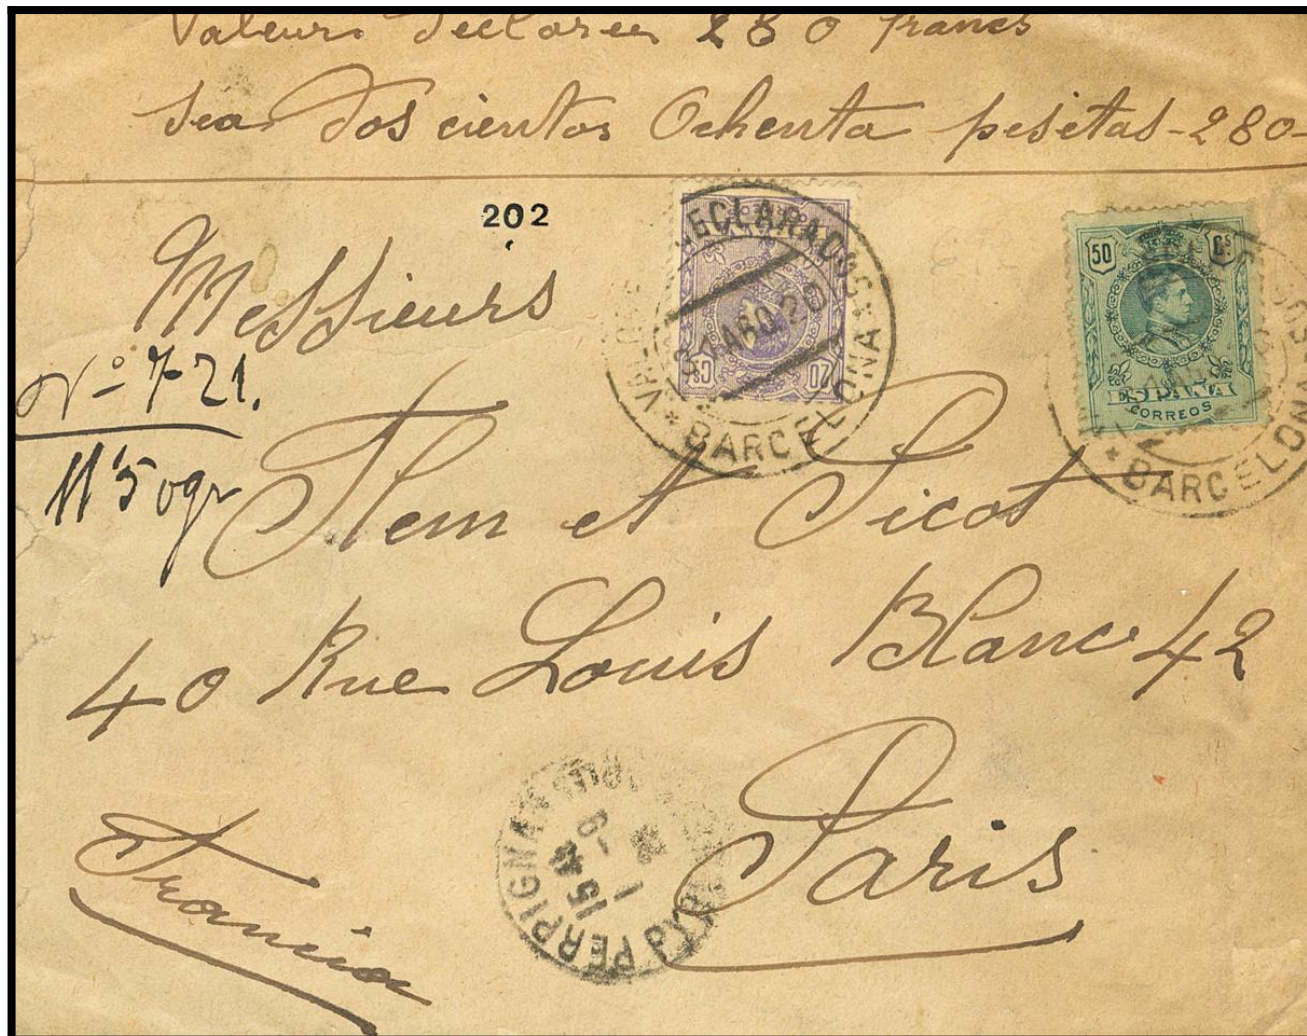 Valeurs Declarees 280 francs
Sea Dos cientos Ochenta pesetas - 280 -
202
Messieurs
Nº 721.
11'50 gr
Flem et Picot
40 Rue Louis Blanc 42
Paris
Francia
DECLARADOS
31 AGO 20
* BARCELONA
20 Cs
50 Cs
ESPAÑA
CORREOS
* BARCELONA
PERPIGNAN
15
1 - 9